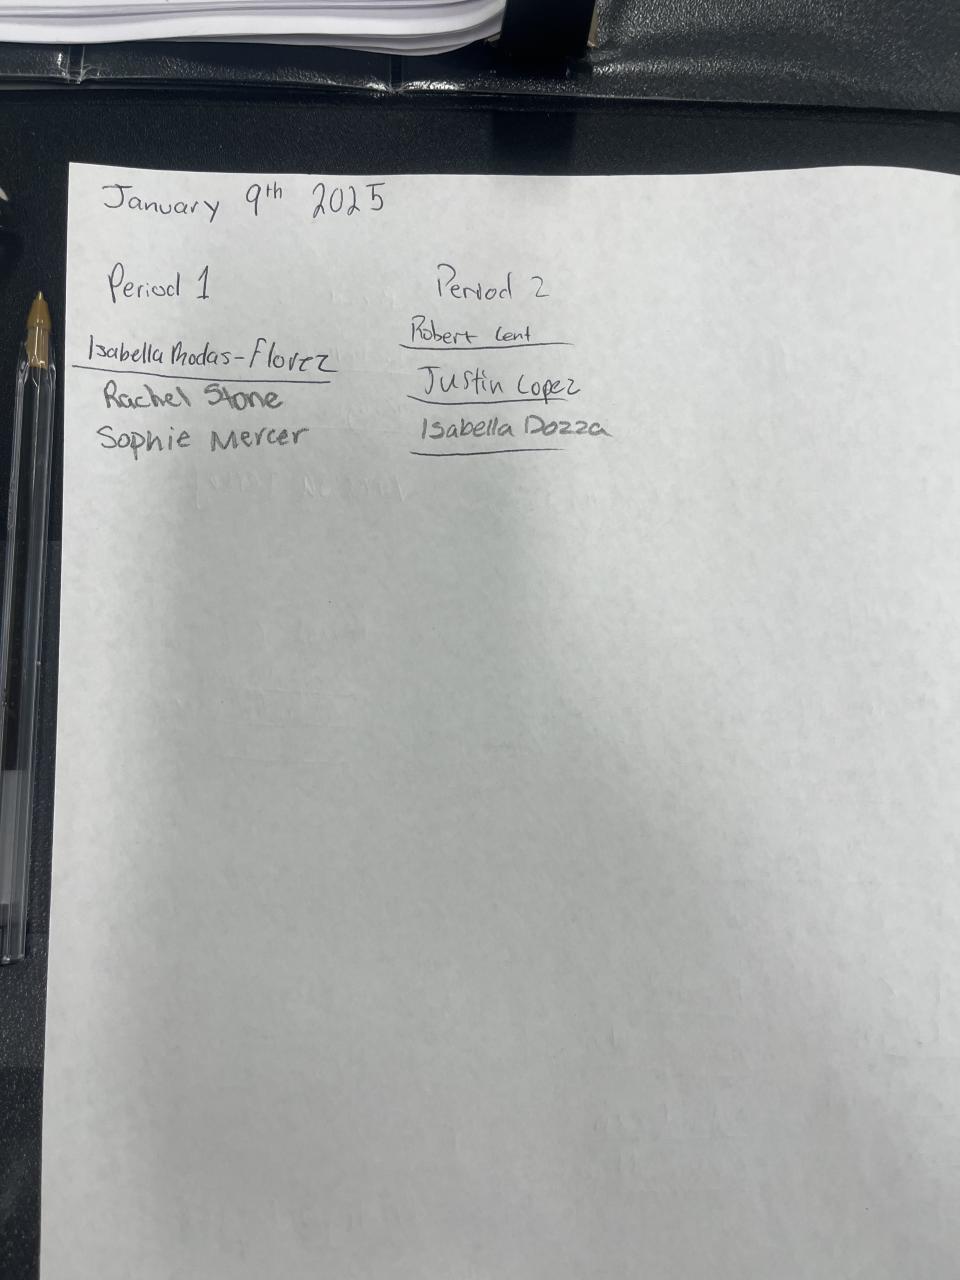 January 9th 2025
Period 1
Isabella Rhodas-Florez
Rachel Stone
Sophie Mercer
Period 2
Robert Cent
Justin Lopez
Isabella Dozza